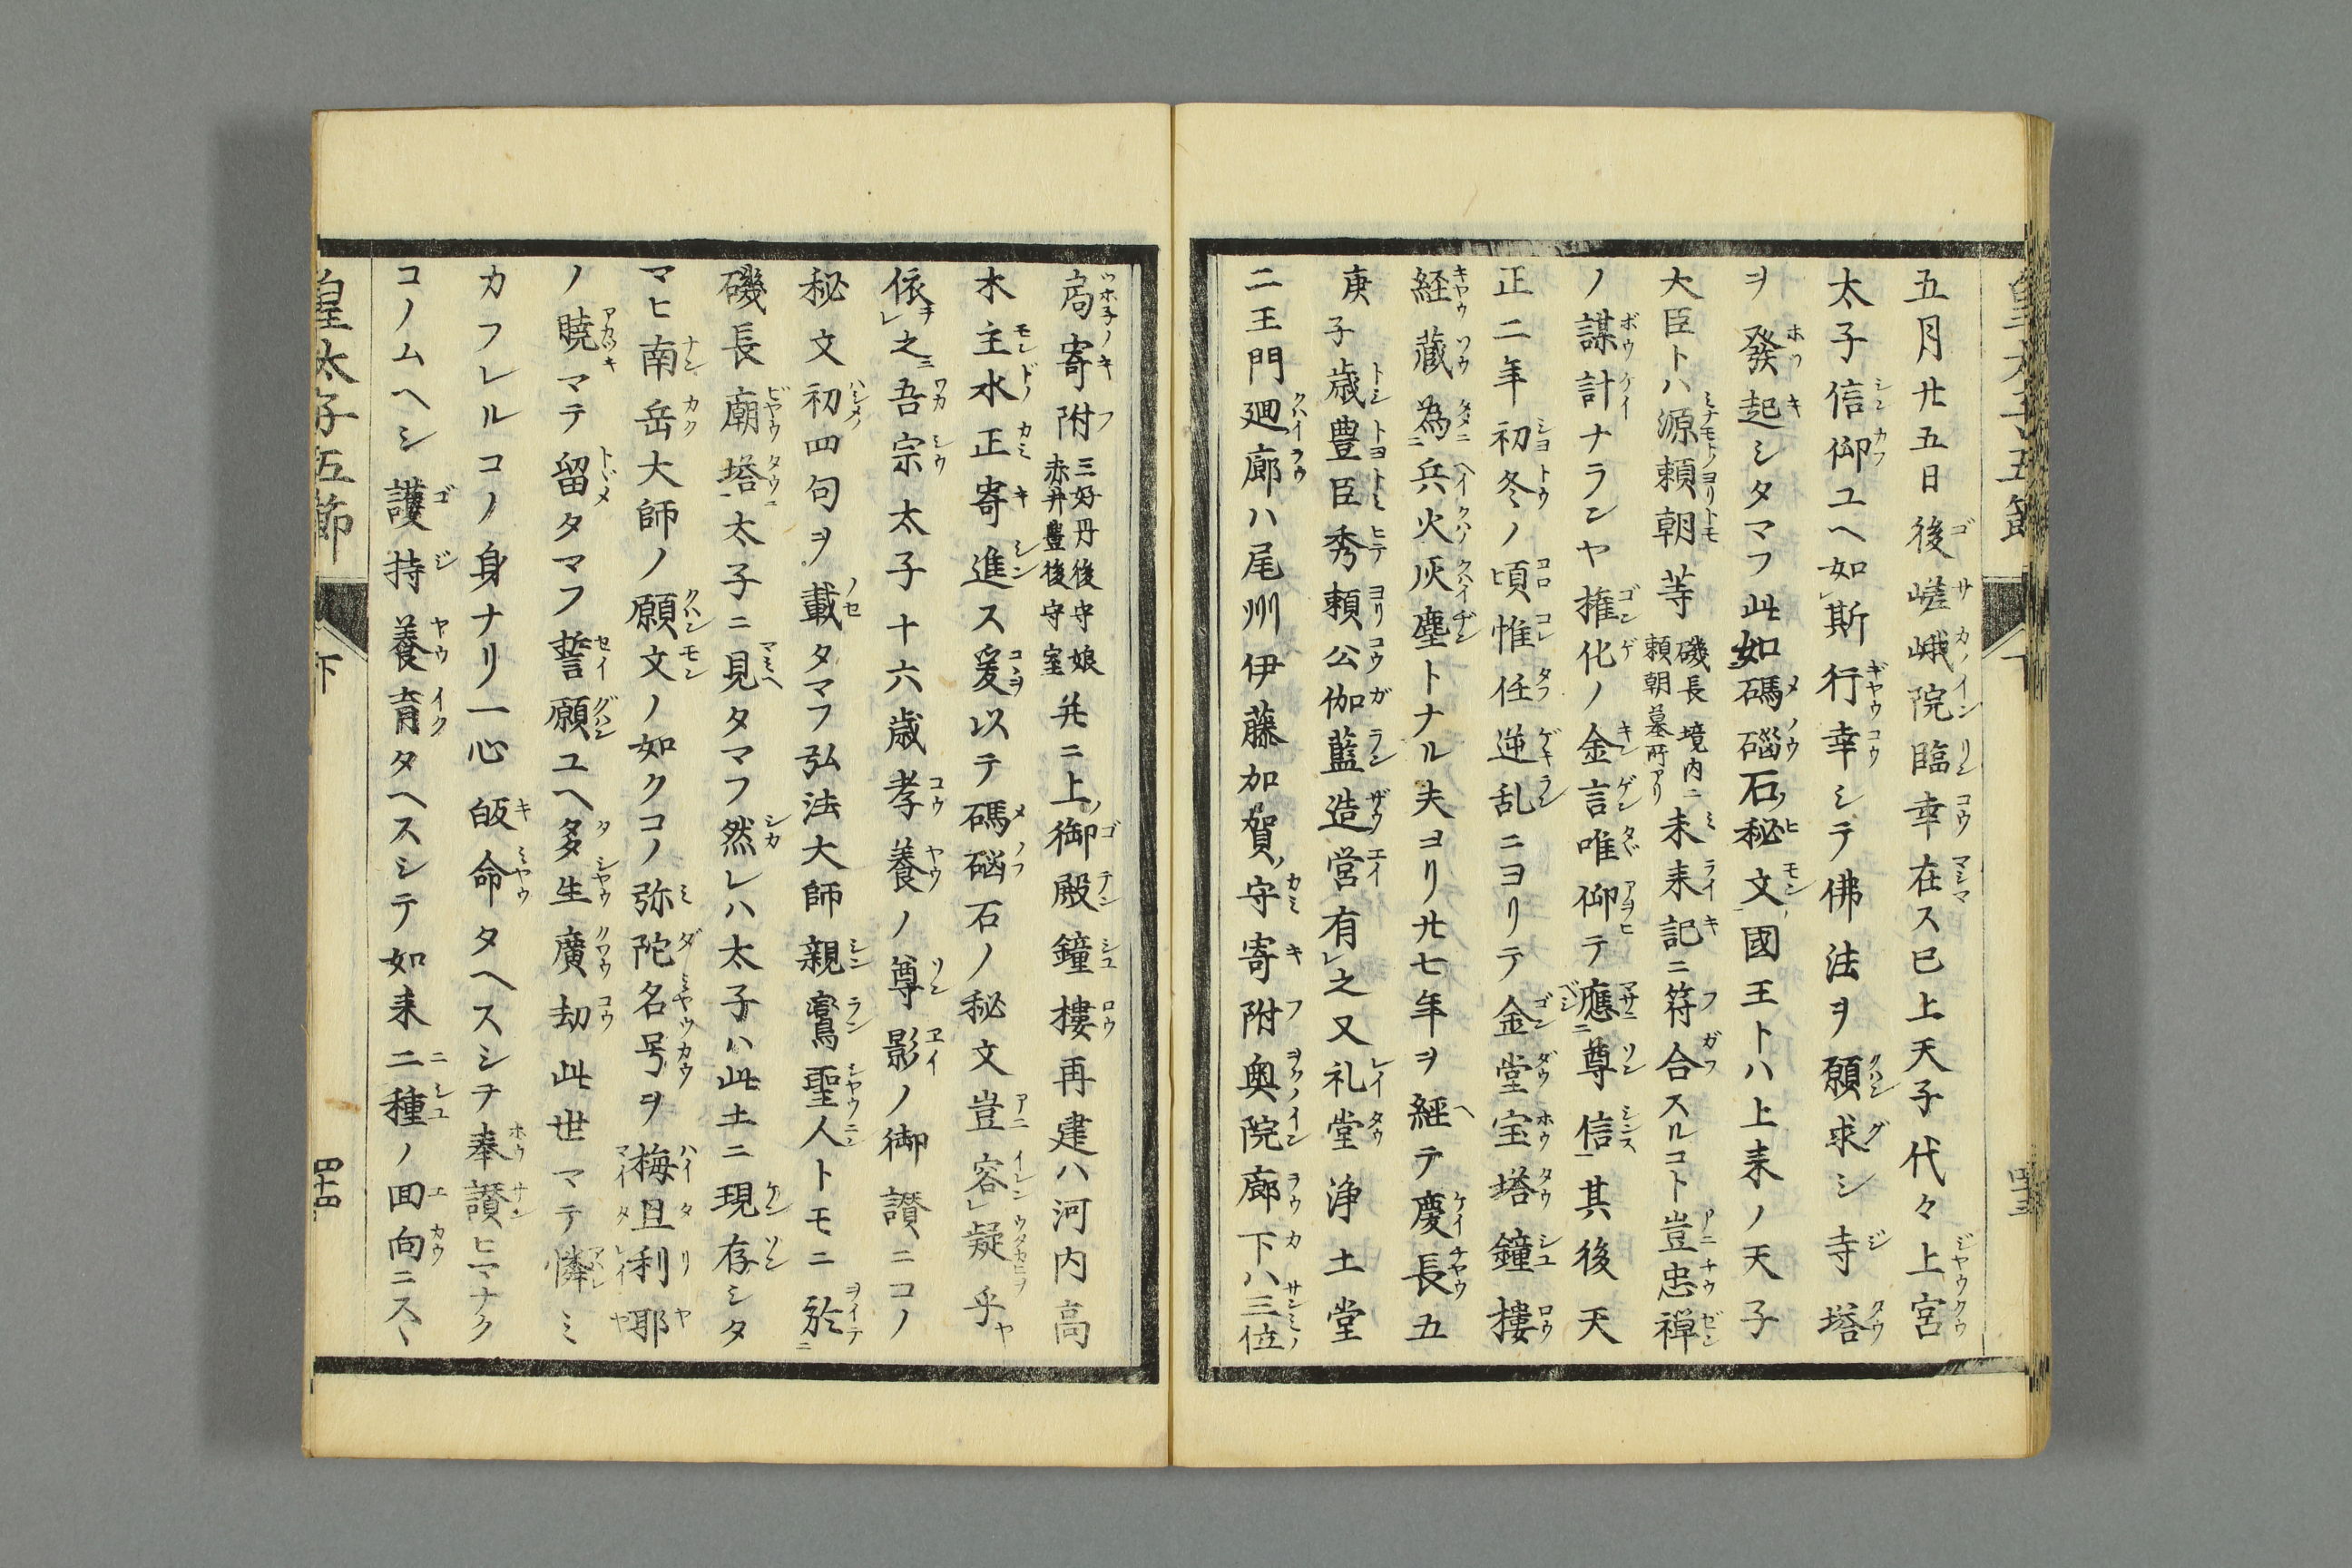 五月廿五日後嵯峨院臨幸在ス已上天子代々上宮
太子信仰ユヘ如斯行幸シテ佛法ヲ願求シ寺塔
ヲ發起シタマフ此如碼碯石ノ秘文ノ國王トハ上来ノ天子
大臣トハ源頼朝等磯長境内ニ頼朝墓所アリ未来記ニ符合スルコト豈忠禅
ノ謀計ナランヤ権化ノ金言唯仰テ應尊信其後天
正二年初冬ノ頃惟任逆乱ニヨリテ金堂宝塔鐘樓
経蔵為兵火灰塵トナル夫ヨリ廿七年ヲ經テ慶長五
庚子歳豊臣秀頼公伽藍造営有之又礼堂浄土堂
二王門廻廊ハ尾州伊藤加賀ノ守寄附奥院廊下ハ三位
局寄附三好丹後守娘赤井豊後守室并ニ上ノ御殿鐘樓再建ハ河内高
木主水正寄進ス爰以テ碼碯石ノ秘文豈容疑乎
依之吾宗太子十六歳孝養ノ尊影ノ御讃ニコノ
秘文初四句ヲ載タマフ弘法大師親鸞聖人トモニ於
磯長廟塔太子ニ見タマフ然レハ太子ハ此土ニ現存シタ
マヒ南岳大師ノ願文ノ如クコノ弥陀名号ヲ梅旦利耶
ノ暁マテ留タマフ誓願ユヘ多生廣劫此世マテ憐ミ
カフレルコノ身ナリ一心皈命タヘスシテ奉讃ヒマナク
コノムヘシ護持養育タヘスシテ如来二種ノ回向ニスヽ
皇太子五節
下
四十四